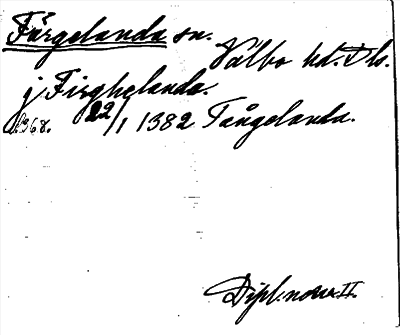 Färgelanda sn.
Valbo hd. Dls.
j Firghelanda.
s. 368. 22/1 1382 Tångelanda.
Dipl. norv. II.